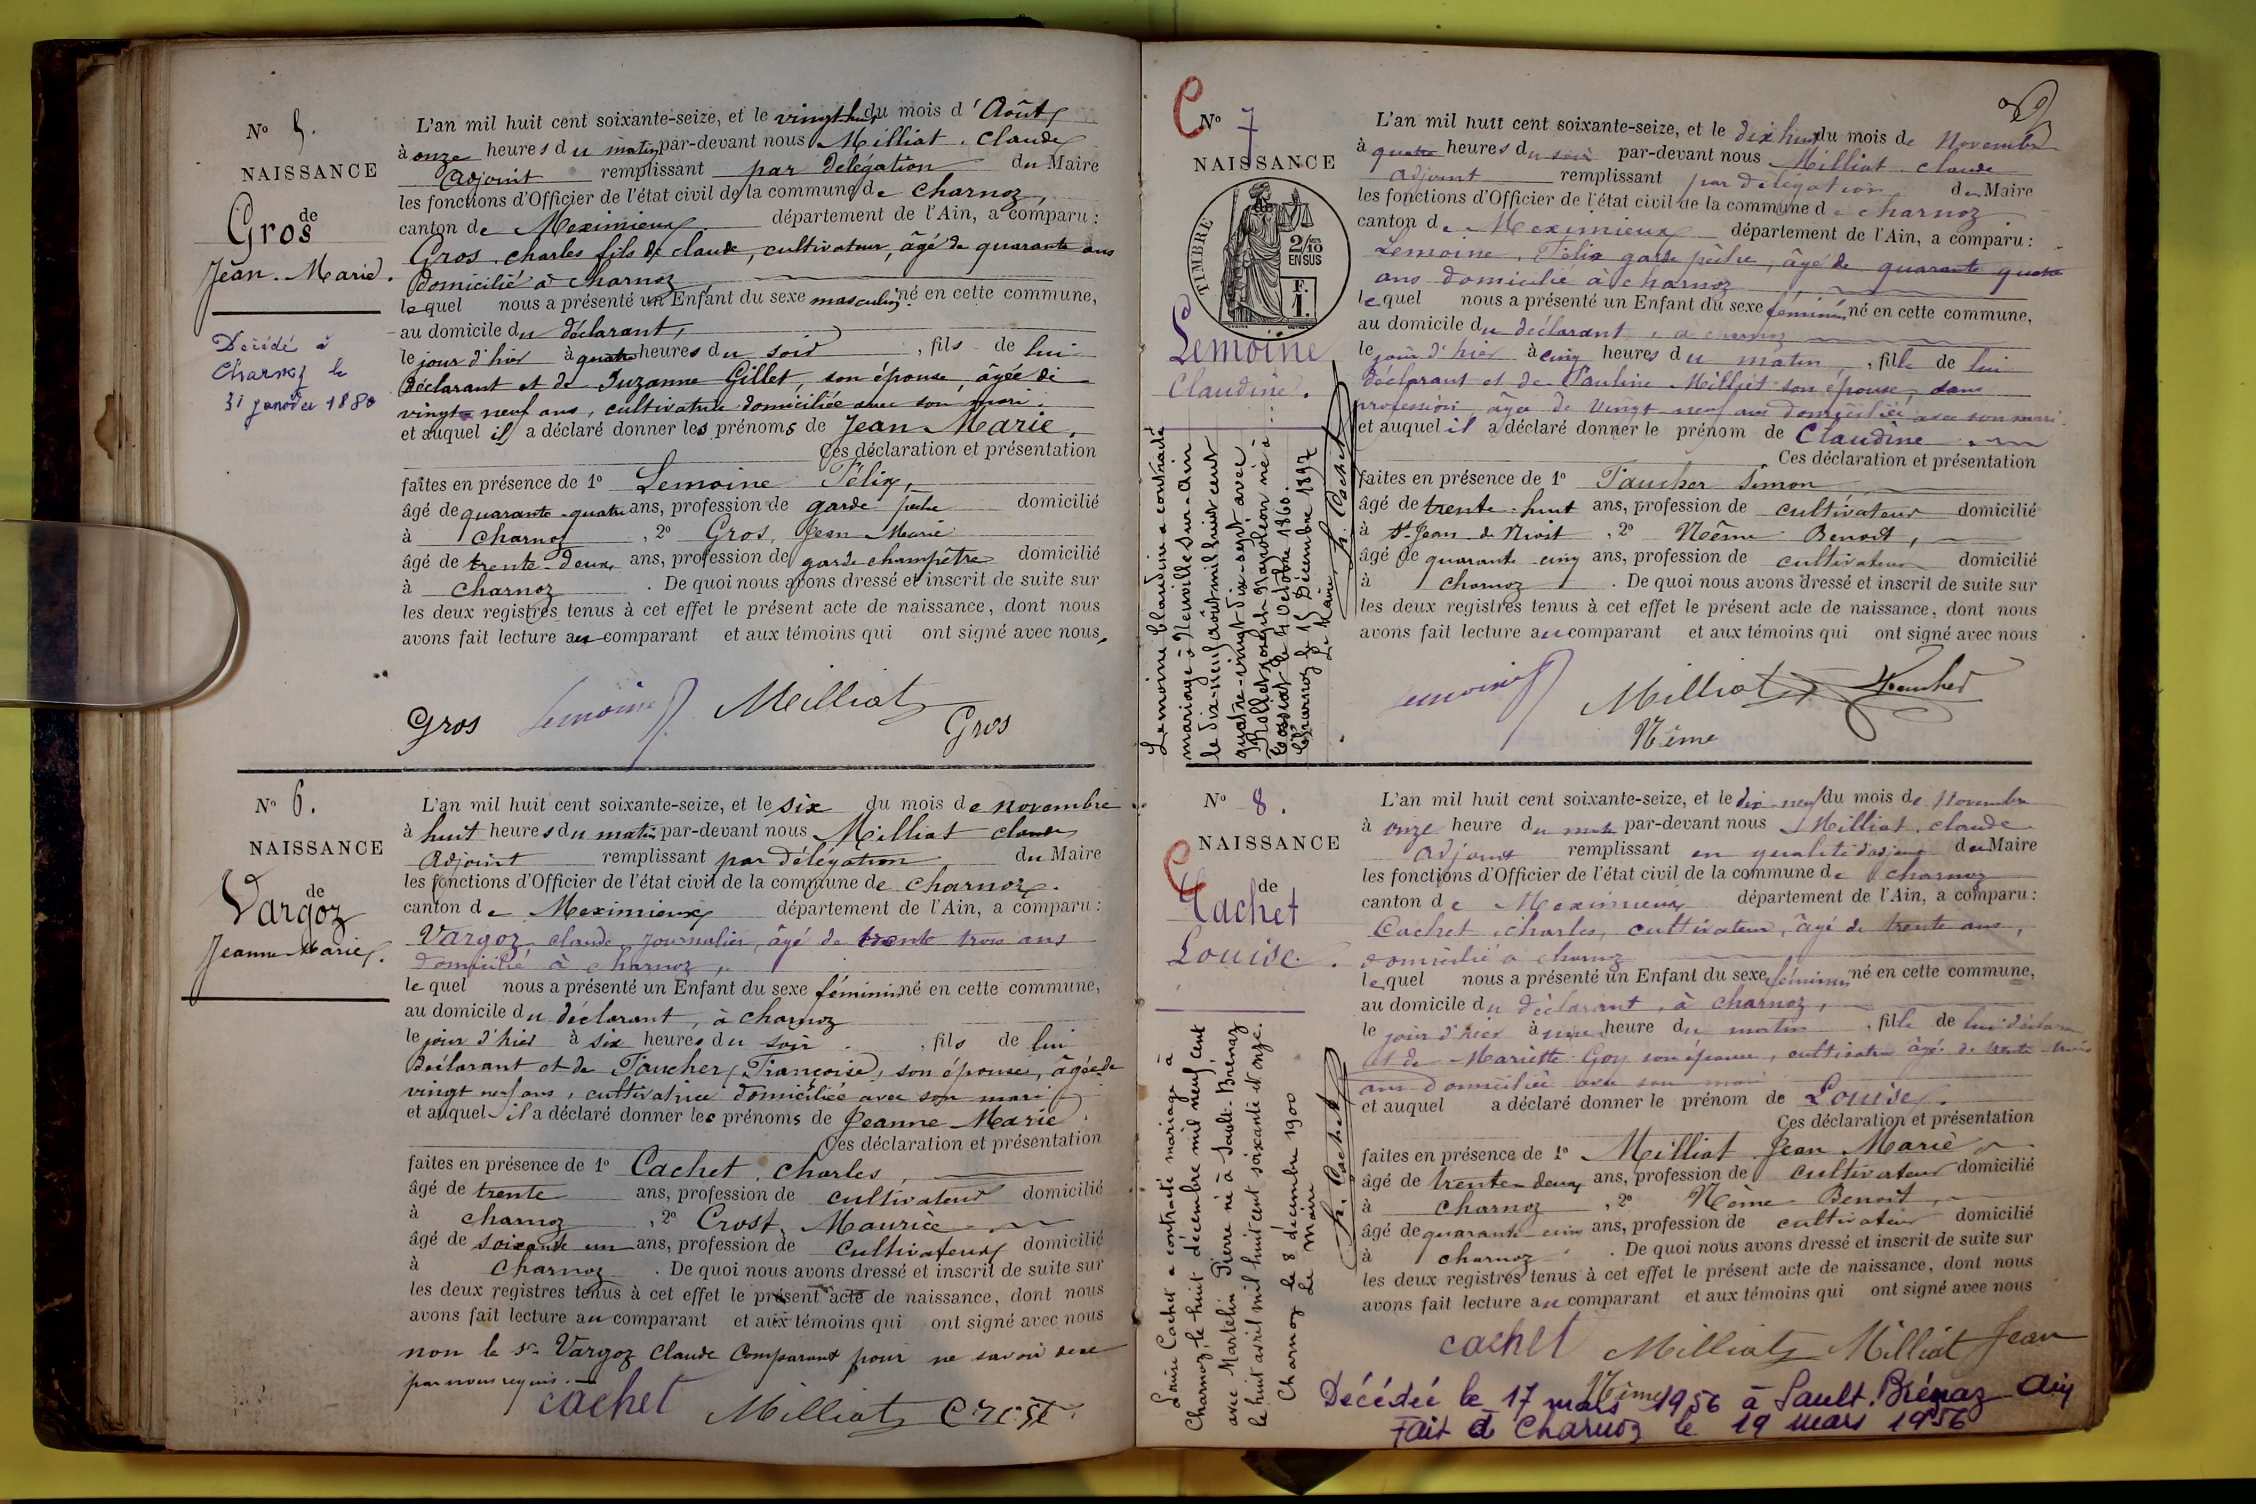 N° 5.
NAISSANCE
de
Gros
Jean-Marie.
Décédé à
Charnoz le
31 janvier 1880
L'an mil huit cent soixante-seize, et le du mois d'Août
à onze heures du matin par-devant nous Milliat, Claude
Adjoint remplissant par Délégation du Maire
les fonctions d'Officier de l'état civil de la commune de Charnoz,
canton de Meximieux département de l'Ain, a comparu :
Gros, charles fils de claude, cultivateur, âgé de quarante ans
domicilié à charnoz
lequel nous a présenté un Enfant du sexe masculin né en cette commune,
au domicile du déclarant,
le jour d'hier à quatre heures du soir, fils de lui
déclarant et de Suzanne Gillet, son épouse, âgée de
vingt-neuf ans, cultivatrice domiciliée avec son mari
et auquel il a déclaré donner les prénoms de Jean Marie.
Ces déclaration et présentation
faites en présence de 1° Lemoine Félix,
âgé de quarante-quatre ans, profession de garde pêche domicilié
à charnoz, 2° Gros, Jean Marie
âgé de trente-deux ans, profession de garde champêtre domicilié
à charnoz. De quoi nous avons dressé et inscrit de suite sur
les deux registres tenus à cet effet le présent acte de naissance, dont nous
avons fait lecture au comparant et aux témoins qui ont signé avec nous,
Gros Lemoine f. Milliat Gros
N° 6.
NAISSANCE
de
Vargoz
Jeanne Marie.
L'an mil huit cent soixante-seize, et le six du mois de novembre
à huit heures du matin par-devant nous Milliat claude
Adjoint remplissant par délégation du Maire
les fonctions d'Officier de l'état civil de la commune de charnoz.
canton de Meximieux département de l'Ain, a comparu :
Vargoz claude journalier, âgé de trente trois ans
domicilié à charnoz,
lequel nous a présenté un Enfant du sexe féminin né en cette commune,
au domicile du déclarant, à charnoz
le jour d'hier à six heures du soir, fils de lui
déclarant et de Faucher, Françoise, son épouse, âgée de
vingt neuf ans, cultivatrice domiciliée avec son mari
et auquel il a déclaré donner les prénoms de Jeanne Marie
Ces déclaration et présentation
faites en présence de 1° Cachet, charles,
âgé de trente ans, profession de cultivateur domicilié
à charnoz, 2° Crost, Maurice
âgé de soixante un ans, profession de cultivateur domicilié
à charnoz. De quoi nous avons dressé et inscrit de suite sur
les deux registres tenus à cet effet le présent acte de naissance, dont nous
avons fait lecture au comparant et aux témoins qui ont signé avec nous
non le sr Vargoz Claude Comparant pour ne savoir de ce
par nous requis.
cachet Milliat Crost
C
N° 7
NAISSANCE
de
TIMBRE
2/10 EN SUS
F. 1.
Lemoine
Claudine.
Lemoine Claudine a contracté
mariage à Neuville-sur-Ain
le dix-neuf août mil huit cent
quatre-vingt-dix-sept avec
Rollet Joseph Napoléon né à
Cossiat le 4 Octobre 1860.
Charnoz le 15 Décembre 1897
Le Maire, h. Cachet
L'an mil huit cent soixante-seize, et le dix huit du mois de Novembre
à quatre heures du soir par-devant nous Milliat claude
adjoint remplissant par délégation du Maire
les fonctions d'Officier de l'état civil de la commune de charnoz
canton de Meximieux département de l'Ain, a comparu :
Lemoine, Félix garde pêche, âgé de quarante quatre
ans domicilié à charnoz
lequel nous a présenté un Enfant du sexe féminin né en cette commune,
au domicile du déclarant, à charnoz
le jour d'hier à cinq heures du matin, fille de lui
déclarant et de Pauline Milliet son épouse, sans
profession, âgée de vingt neuf ans domiciliée avec son mari.
et auquel il a déclaré donner le prénom de Claudine
Ces déclaration et présentation
faites en présence de 1° Faucher Simon
âgé de trente-huit ans, profession de cultivateur domicilié
à St Jean de Niost, 2° Nême Benoit,
âgé de quarante cinq ans, profession de cultivateur domicilié
à charnoz. De quoi nous avons dressé et inscrit de suite sur
les deux registres tenus à cet effet le présent acte de naissance, dont nous
avons fait lecture au comparant et aux témoins qui ont signé avec nous
Lemoine f Milliat Faucher
Nême
N° 8.
NAISSANCE
C
de
Cachet
Louise.
Louise Cachet a contracté mariage à
Charnoz, le huit décembre mil neuf cent
avec Martelin Pierre né à Sault-Brénaz
le huit avril mil huit cent soixante et onze.
Charnoz le 8 décembre 1900
Le maire
h. Cachet
L'an mil huit cent soixante-seize, et le dix neuf du mois de Novembre
à onze heure du matin par-devant nous Milliat, claude
Adjoint remplissant en qualité d'adjoint du Maire
les fonctions d'Officier de l'état civil de la commune de charnoz
canton de Meximieux département de l'Ain, a comparu :
Cachet, charles, cultivateur, âgé de trente ans,
domicilié à charnoz
lequel nous a présenté un Enfant du sexe féminin né en cette commune,
au domicile du déclarant, à charnoz,
le jour d'hier à une heure du matin, fille de lui déclarant
et de Mariette Goy son épouse, cultivatrice âgée de trente trois
ans domiciliée avec son mari
et auquel a déclaré donner le prénom de Louise.
Ces déclaration et présentation
faites en présence de 1° Milliat Jean Marie
âgé de trente-deux ans, profession de cultivateur domicilié
à charnoz, 2° Nême Benoit,
âgé de quarante-cinq ans, profession de cultivateur domicilié
à charnoz. De quoi nous avons dressé et inscrit de suite sur
les deux registres tenus à cet effet le présent acte de naissance, dont nous
avons fait lecture au comparant et aux témoins qui ont signé avec nous
cachet Milliat Milliat Jean
Nême
Décédée le 17 mars 1956 à Sault-Brénaz Ain
Fait à Charnoz le 19 mars 1956